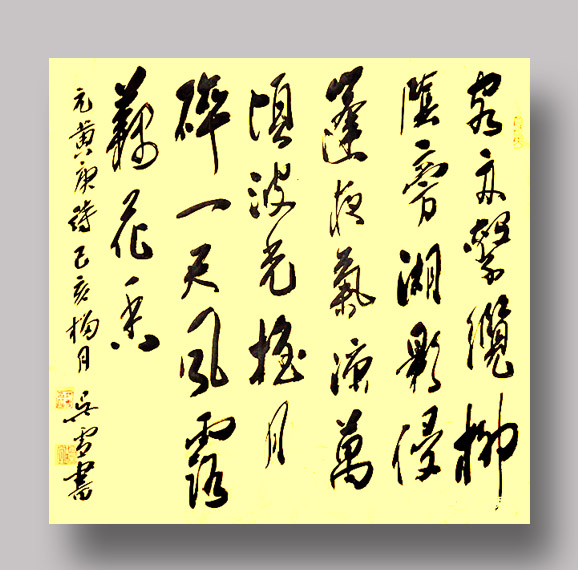 客舟繫纜柳
陰旁湖影侵
篷夜氣凉萬
頃波光摇月
碎一天風露
藕花香
元黄庚詩己亥梅月 吴雪書